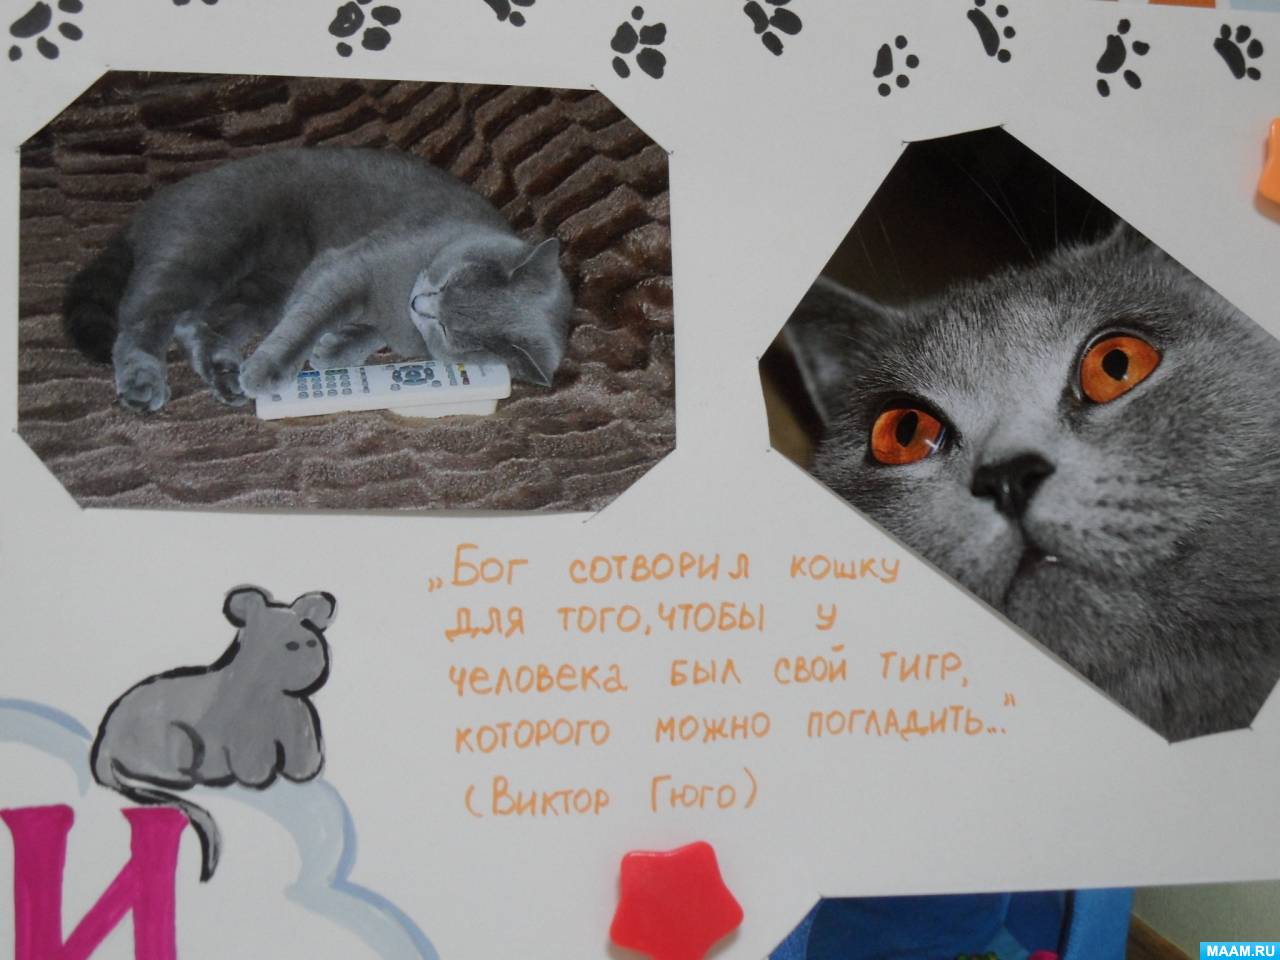 „Бог сотворил кошку
для того, чтобы у
человека был свой тигр,
которого можно погладить..."
(Виктор Гюго)
И
MAAM.RU